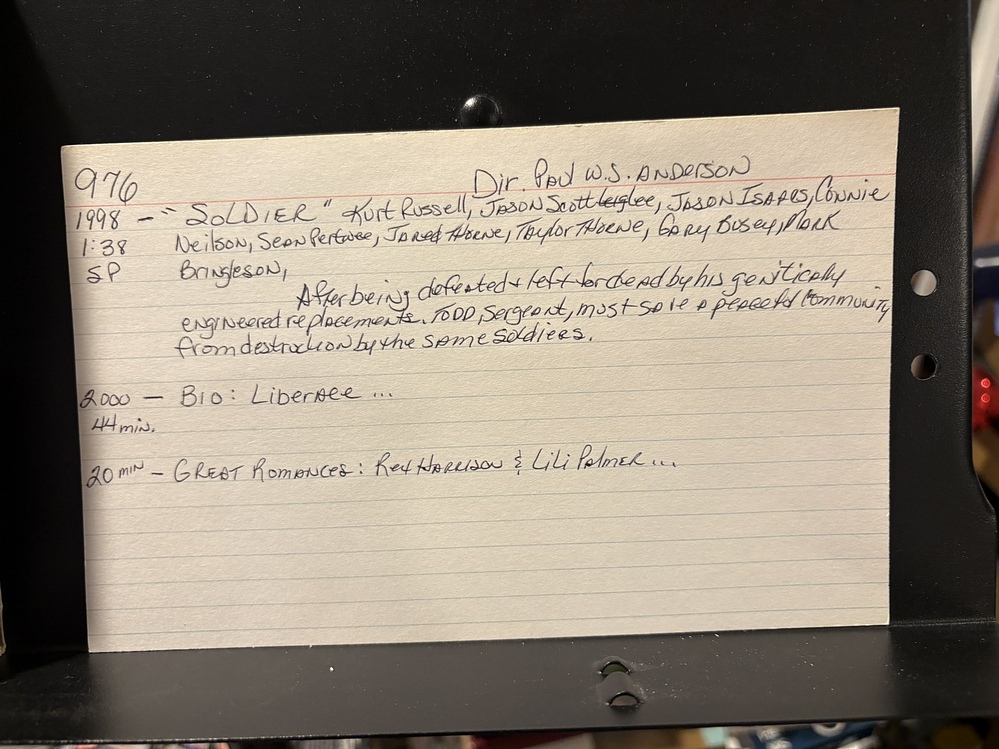 976
Dir. Paul W.S. Anderson
1998 - "SOLDIER" Kurt Russell, Jason Scott Lee, Jason Isaacs, Connie
1:38 Neilson, Sean Pertwee, Jared Thorne, Taylor Thorne, Gary Busey, Mark
SP Bringleson,
After being defeated & left for dead by his genitically
engineered replacements, TODD, Sergeant, must save a peaceful Community
from destruction by the same Soldiers.
2000 - Bio: Liberace ...
44 min.
20 min - Great Romances: Rex Harrison & Lili Palmer ...